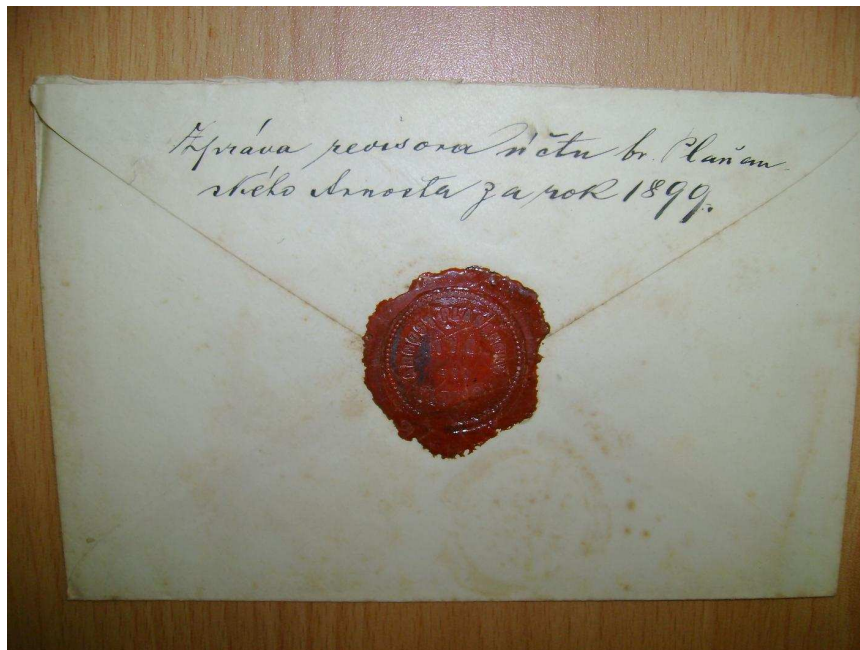 Zpráva revisora účtu br. Plaňan-
ského Arnošta za rok 1899.